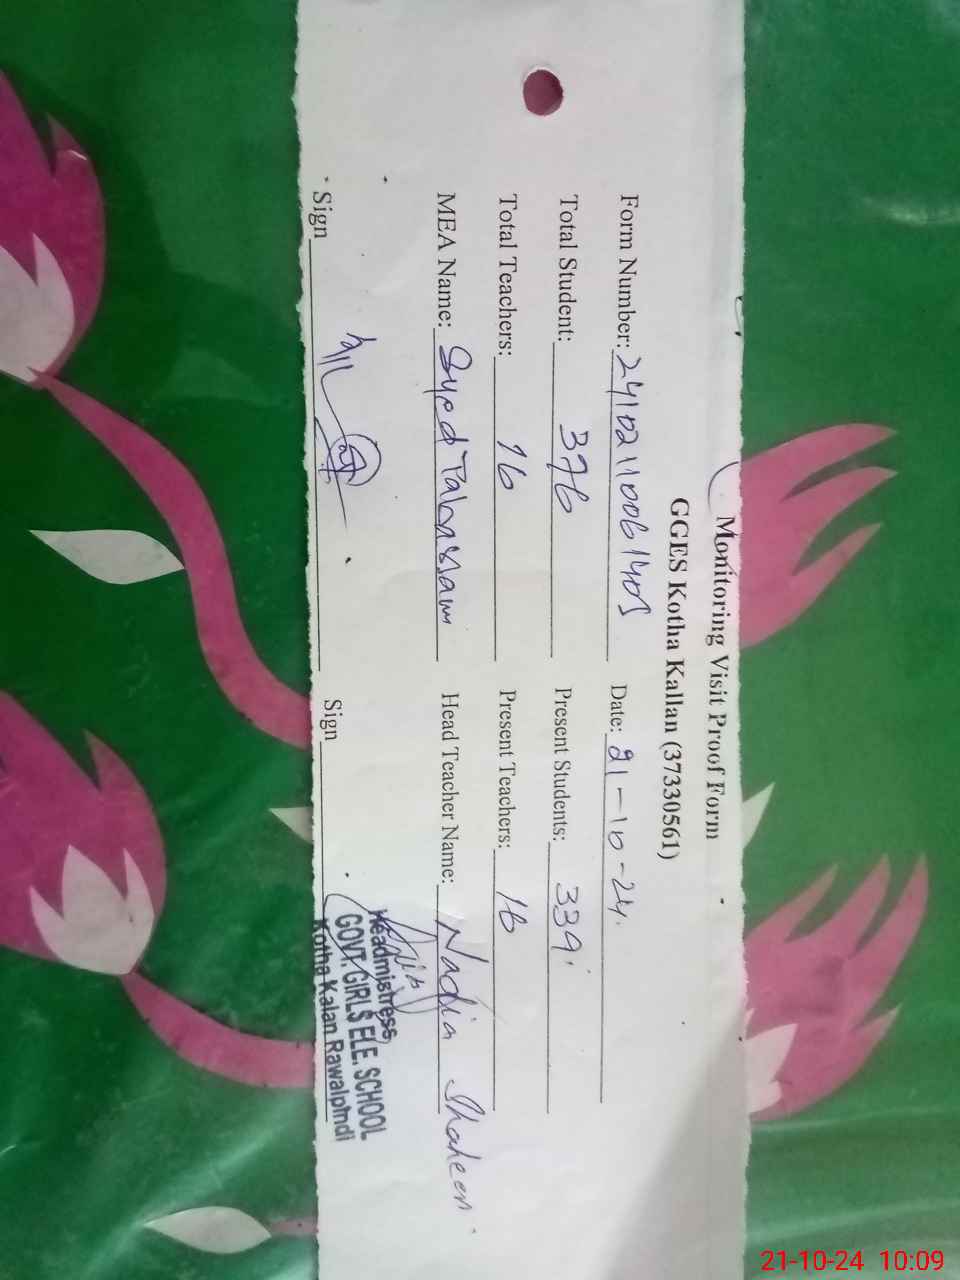 Monitoring Visit Proof Form
GGES Kotha Kallan (37330561)
Form Number: 2410211006140S Date: 21-10-24.
Total Student: 376 Present Students: 339
Total Teachers: 16 Present Teachers: 16
MEA Name: Syed Tabassam Head Teacher Name: Nadia Shaheen.
Sign Sign
Headmistress
GOVT. GIRLS ELE. SCHOOL
Kotha Kalan Rawalpindi
21-10-24 10:09